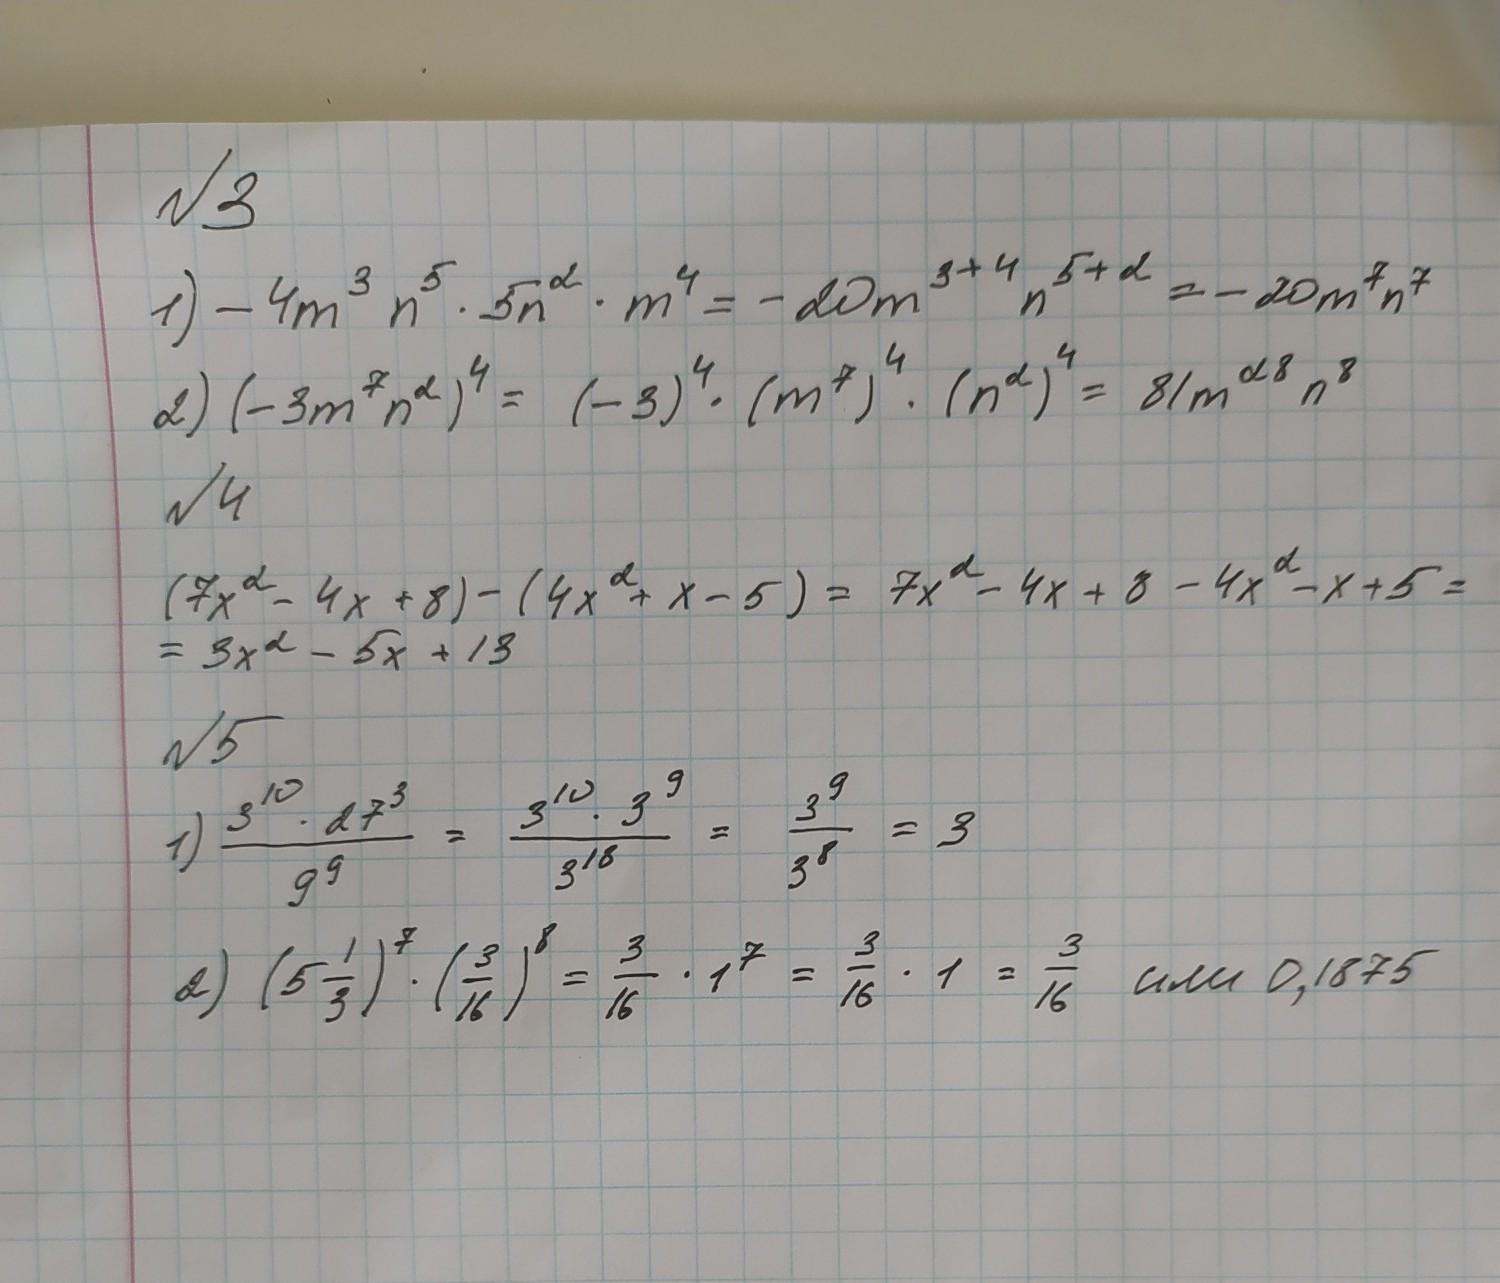 №3
1) -4m³n⁵ · 5n² · m⁴ = -20m³⁺⁴n⁵⁺² = -20m⁷n⁷
2) (-3m⁷n²)⁴ = (-3)⁴ · (m⁷)⁴ · (n²)⁴ = 81m²⁸n⁸
№4
(7x² - 4x + 8) - (4x² + x - 5) = 7x² - 4x + 8 - 4x² - x + 5 =
= 3x² - 5x + 13
№5
1) (3¹⁰ · 27³)/9⁹ = (3¹⁰ · 3⁹)/3¹⁸ = 3⁹/3⁸ = 3
2) (5 1/3)⁷ · (3/16)⁸ = 3/16 · 1⁷ = 3/16 · 1 = 3/16 или 0,1875